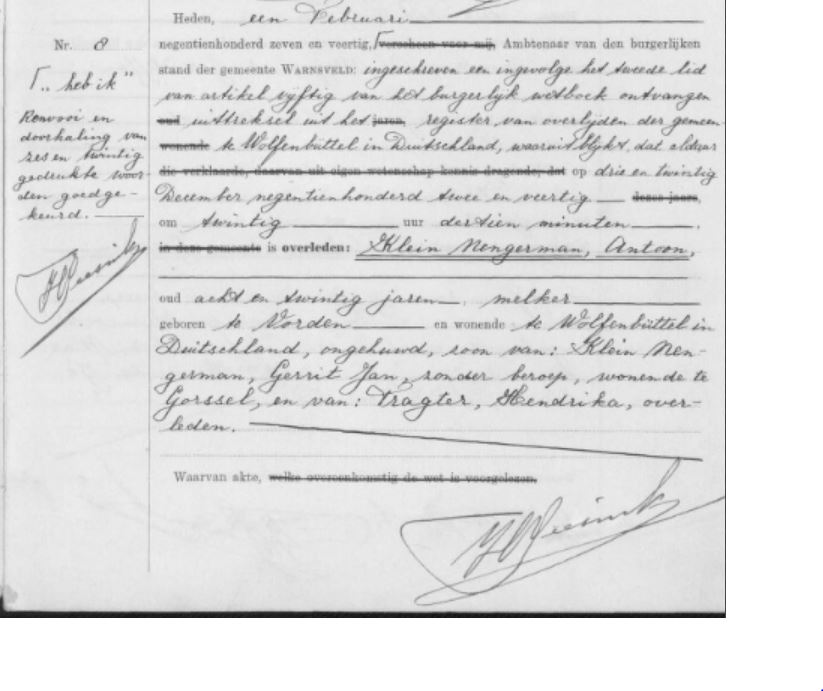 Heden, een Februari
Nr. 8
negentienhonderd zeven en veertig, ⌈ verscheen voor mij, Ambtenaar van den burgerlijken
stand der gemeente WARNSVELD: ingeschreven een ingevolge het tweede lid
⌈ „ heb ik "
van artikel vijftig van het burgerlijk wetboek ontvangen
oud uittreksel uit het jaren, register van overlijden der gemeen-
wonende te Wolfenbüttel in Duitschland, waaruit blijkt, dat aldaar
die verklaarde, daarvan uit eigen wetenschap kennis dragende, dat op drie en twintig
December negentienhonderd twee en veertig dezes jaars,
om twintig uur dertien minuten,
Renvooi en
doorhaling van
zes en twintig
gedrukte woor-
den goedge-
keurd.
in deze gemeente is overleden: Klein Nengerman, Antoon,
oud acht en twintig jaren, melker
geboren te Vorden en wonende te Wolfenbüttel in
Duitschland, ongehuwd, zoon van: Klein Nen-
german, Gerrit Jan, zonder beroep, wonende te
Gorssel, en van: Tragter, Hendrika, over-
leden.
Waarvan akte, welke overeenkomstig de wet is voorgelezen.